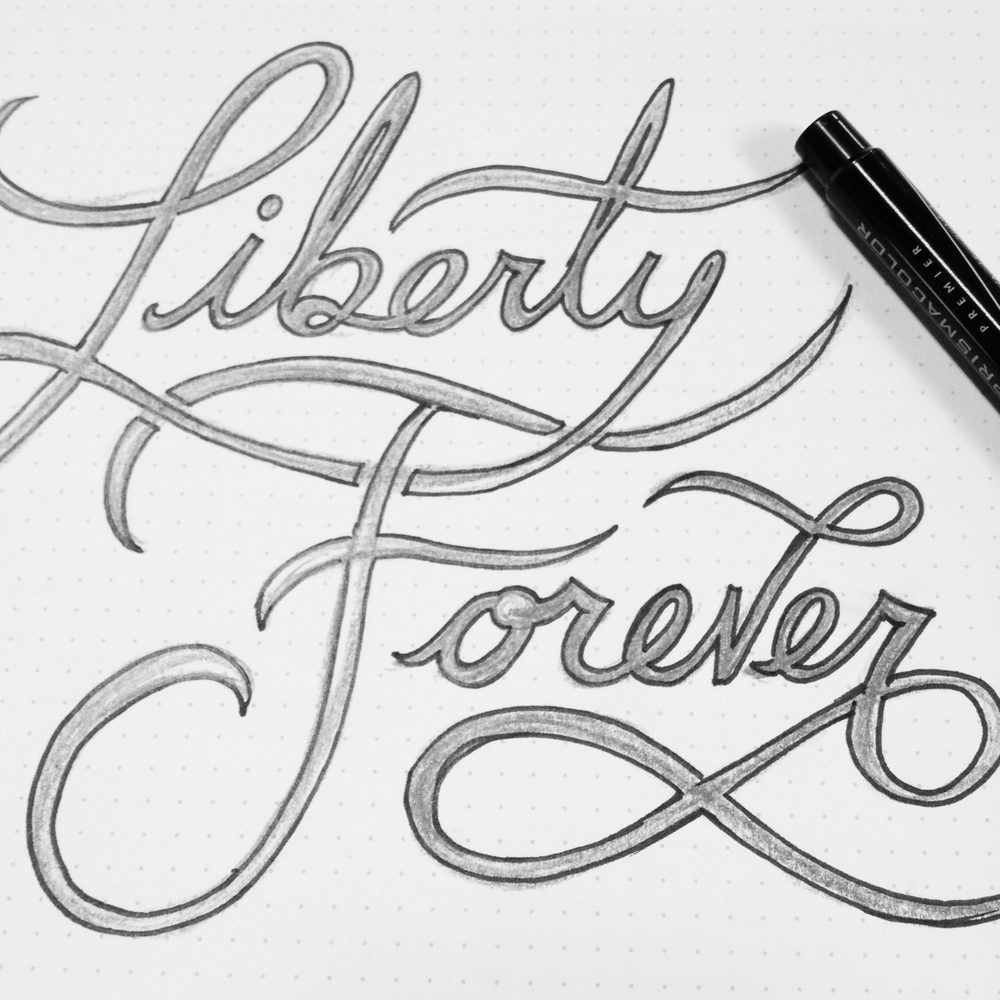 Liberty
Forever
PRISMACOLOR
PREMIER